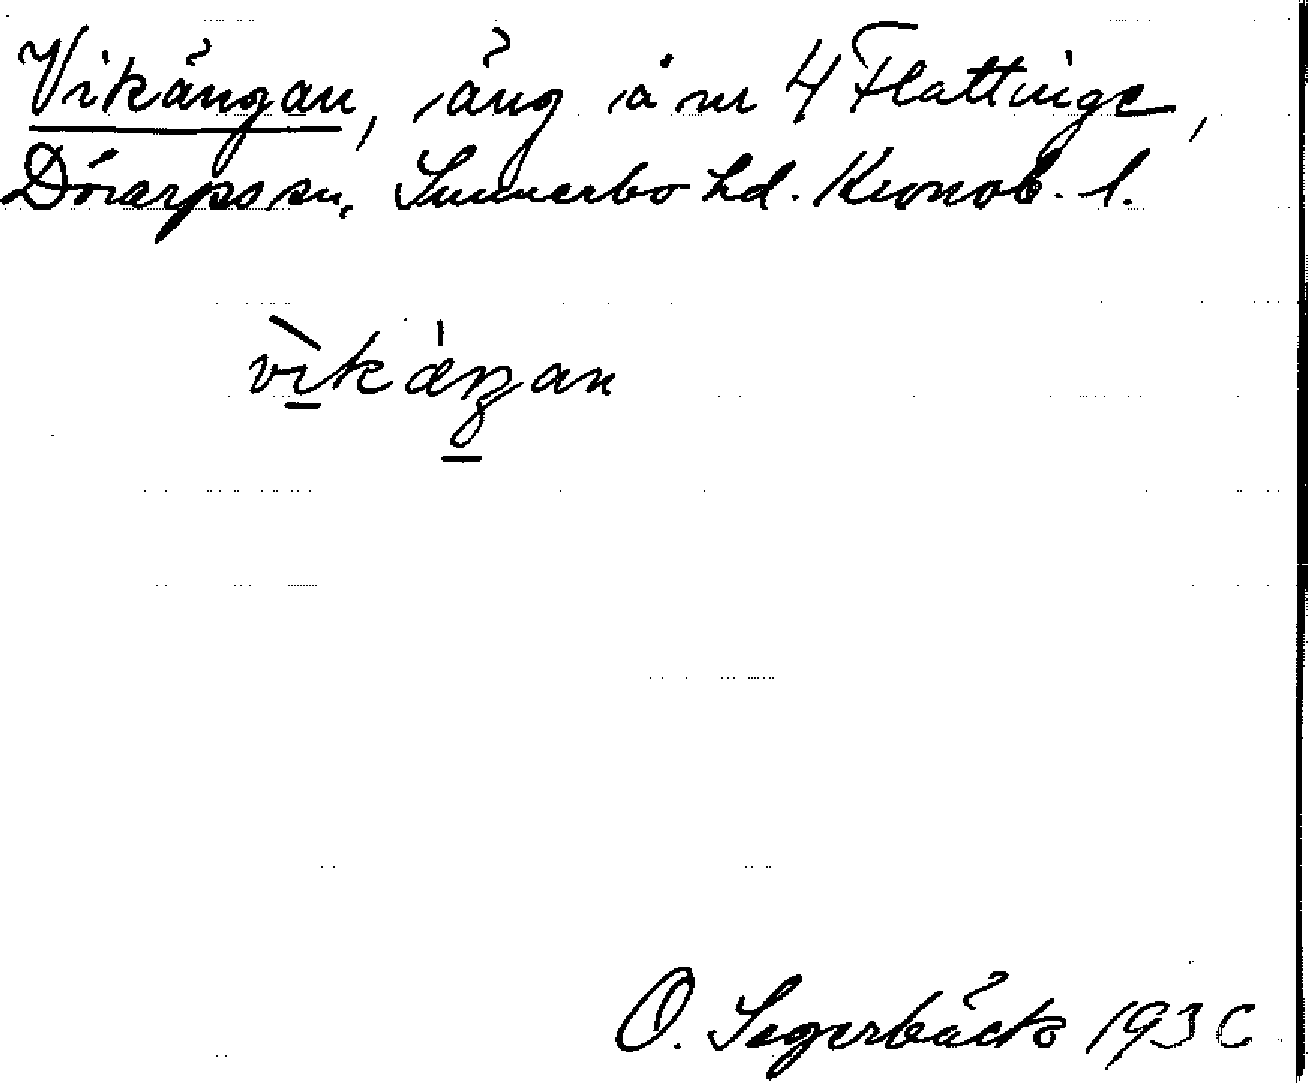 Vikängan, äng å nr 4 Flattinge,
Dörarps sn, Sunnerbo hd. Kronob. l.
vìkäŋan
O. Segerbäck 193